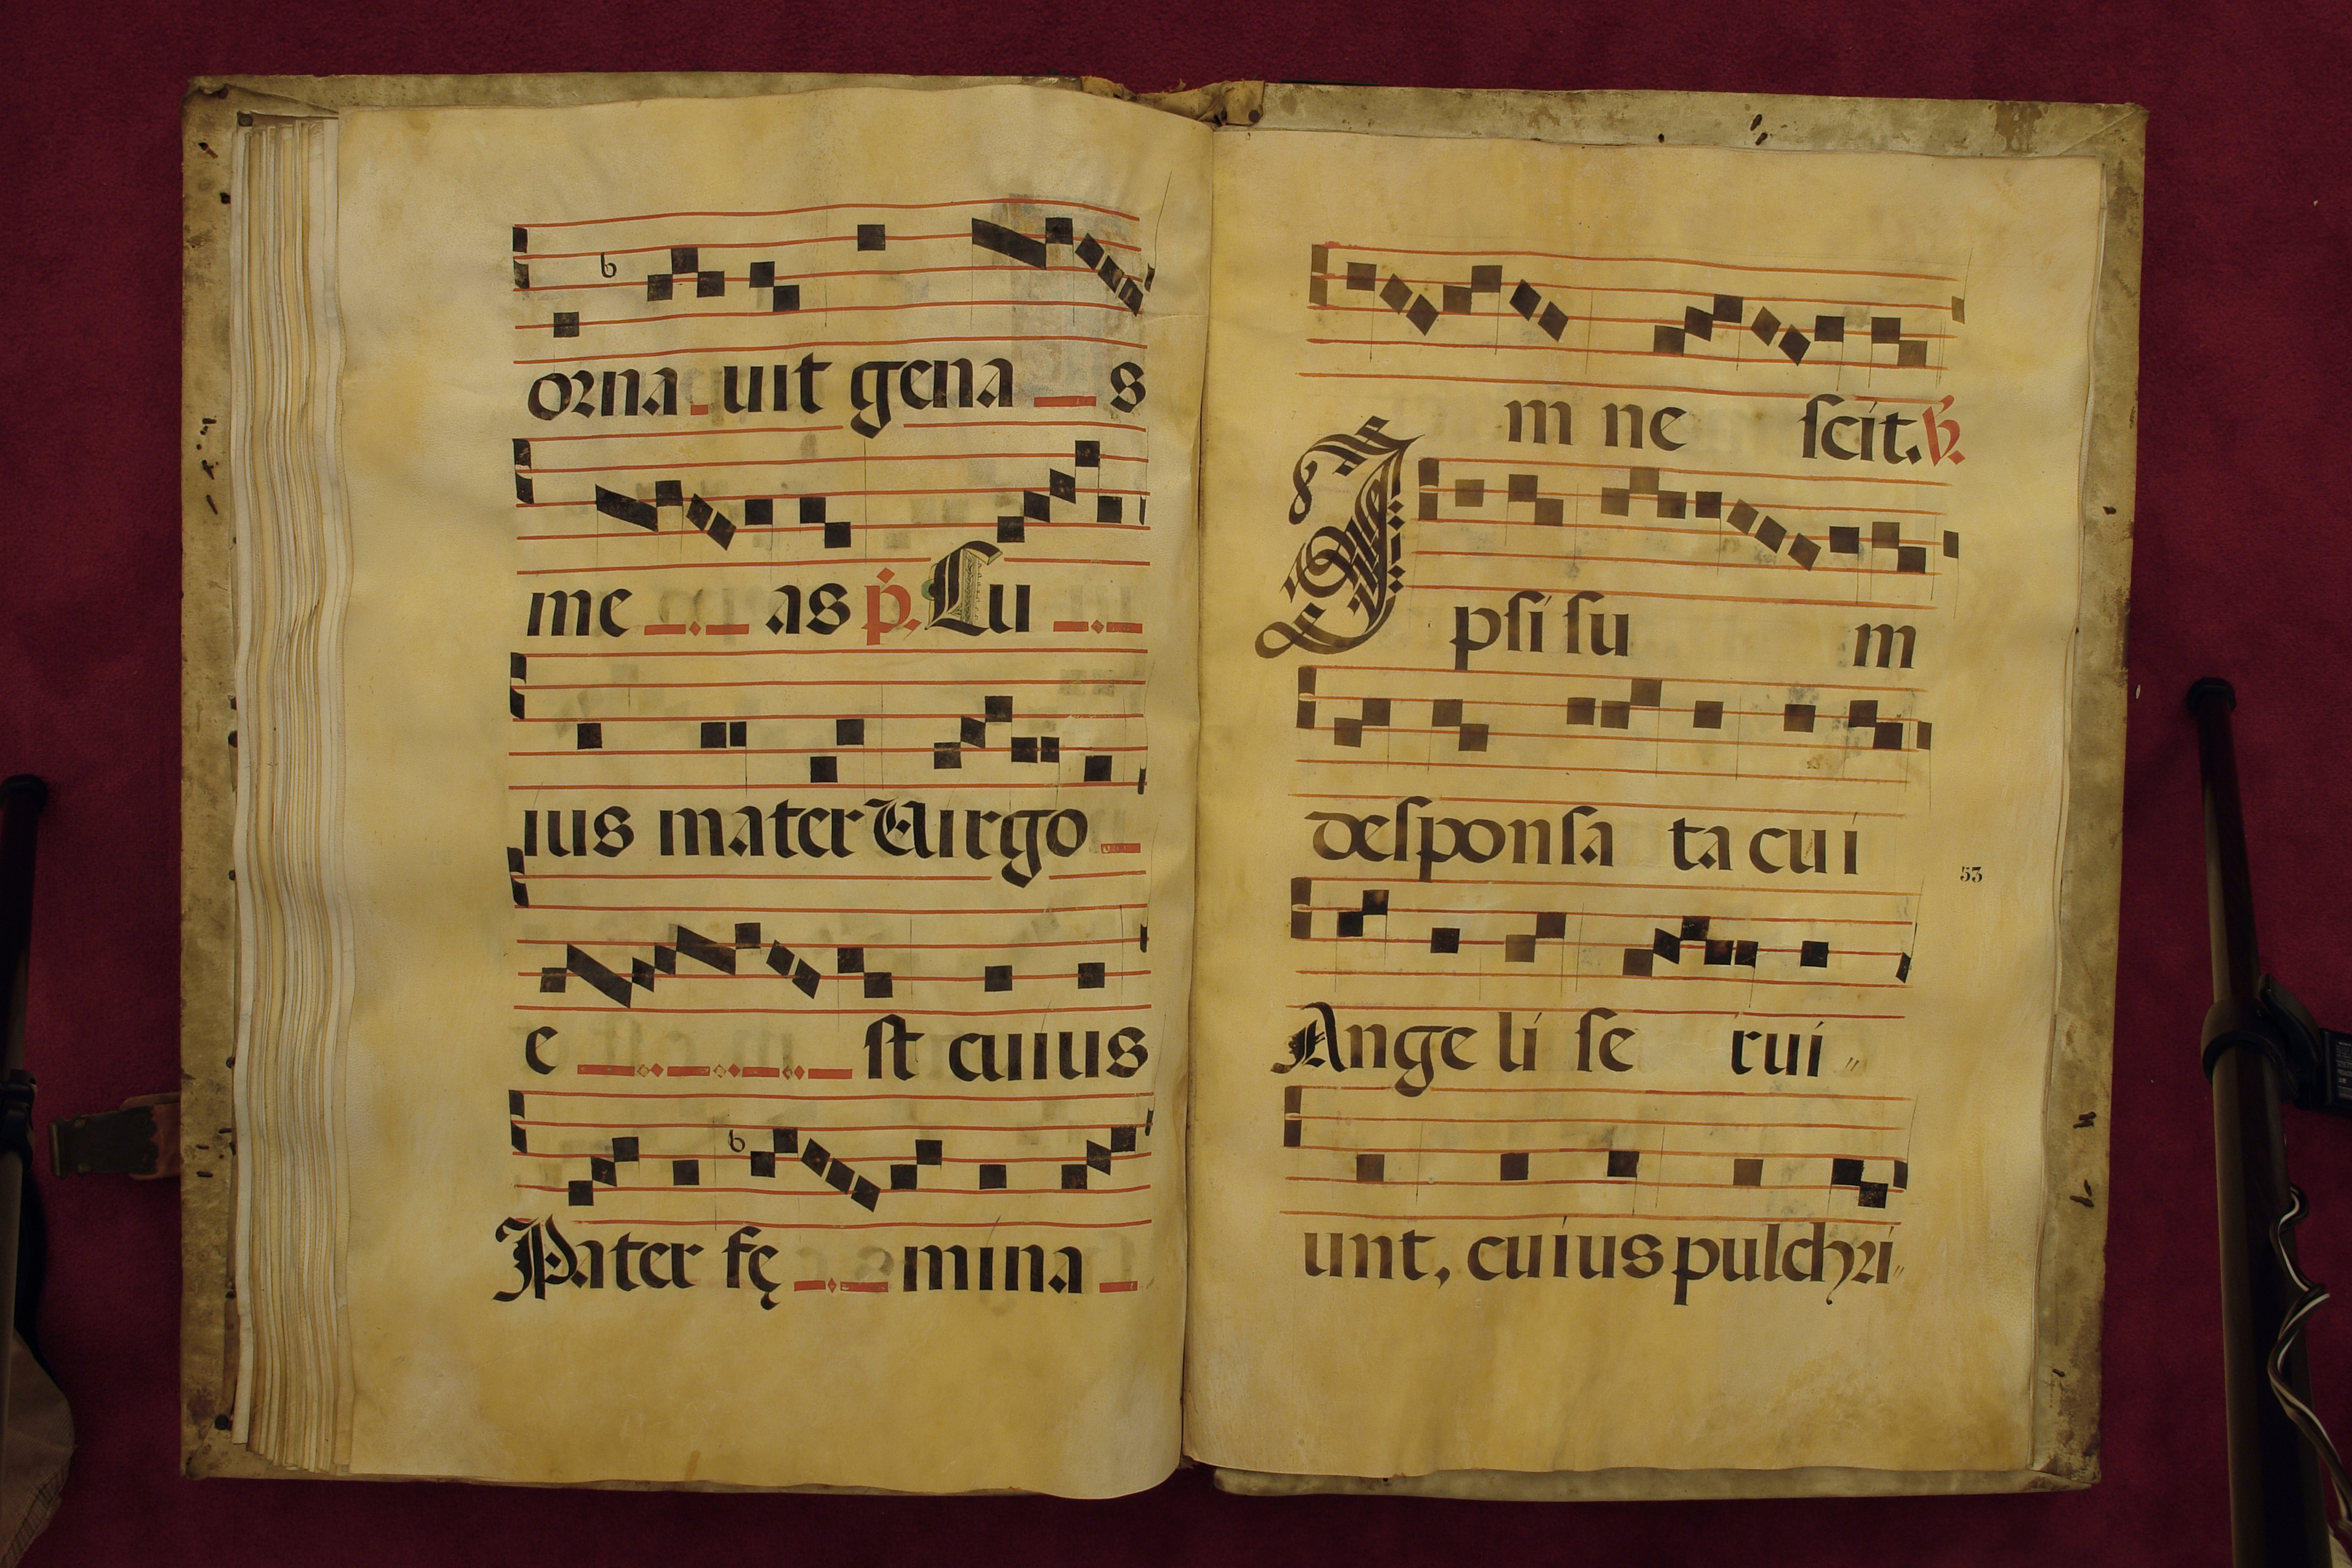 orna uit gena s
me as ṗ. Cu
ius mater Uirgo
e st cuius
Pater fę mina
m ne scit. ℣.
Ipsi su m
desponsa ta cui
53
Ange li se rui
unt, cuius pulchri